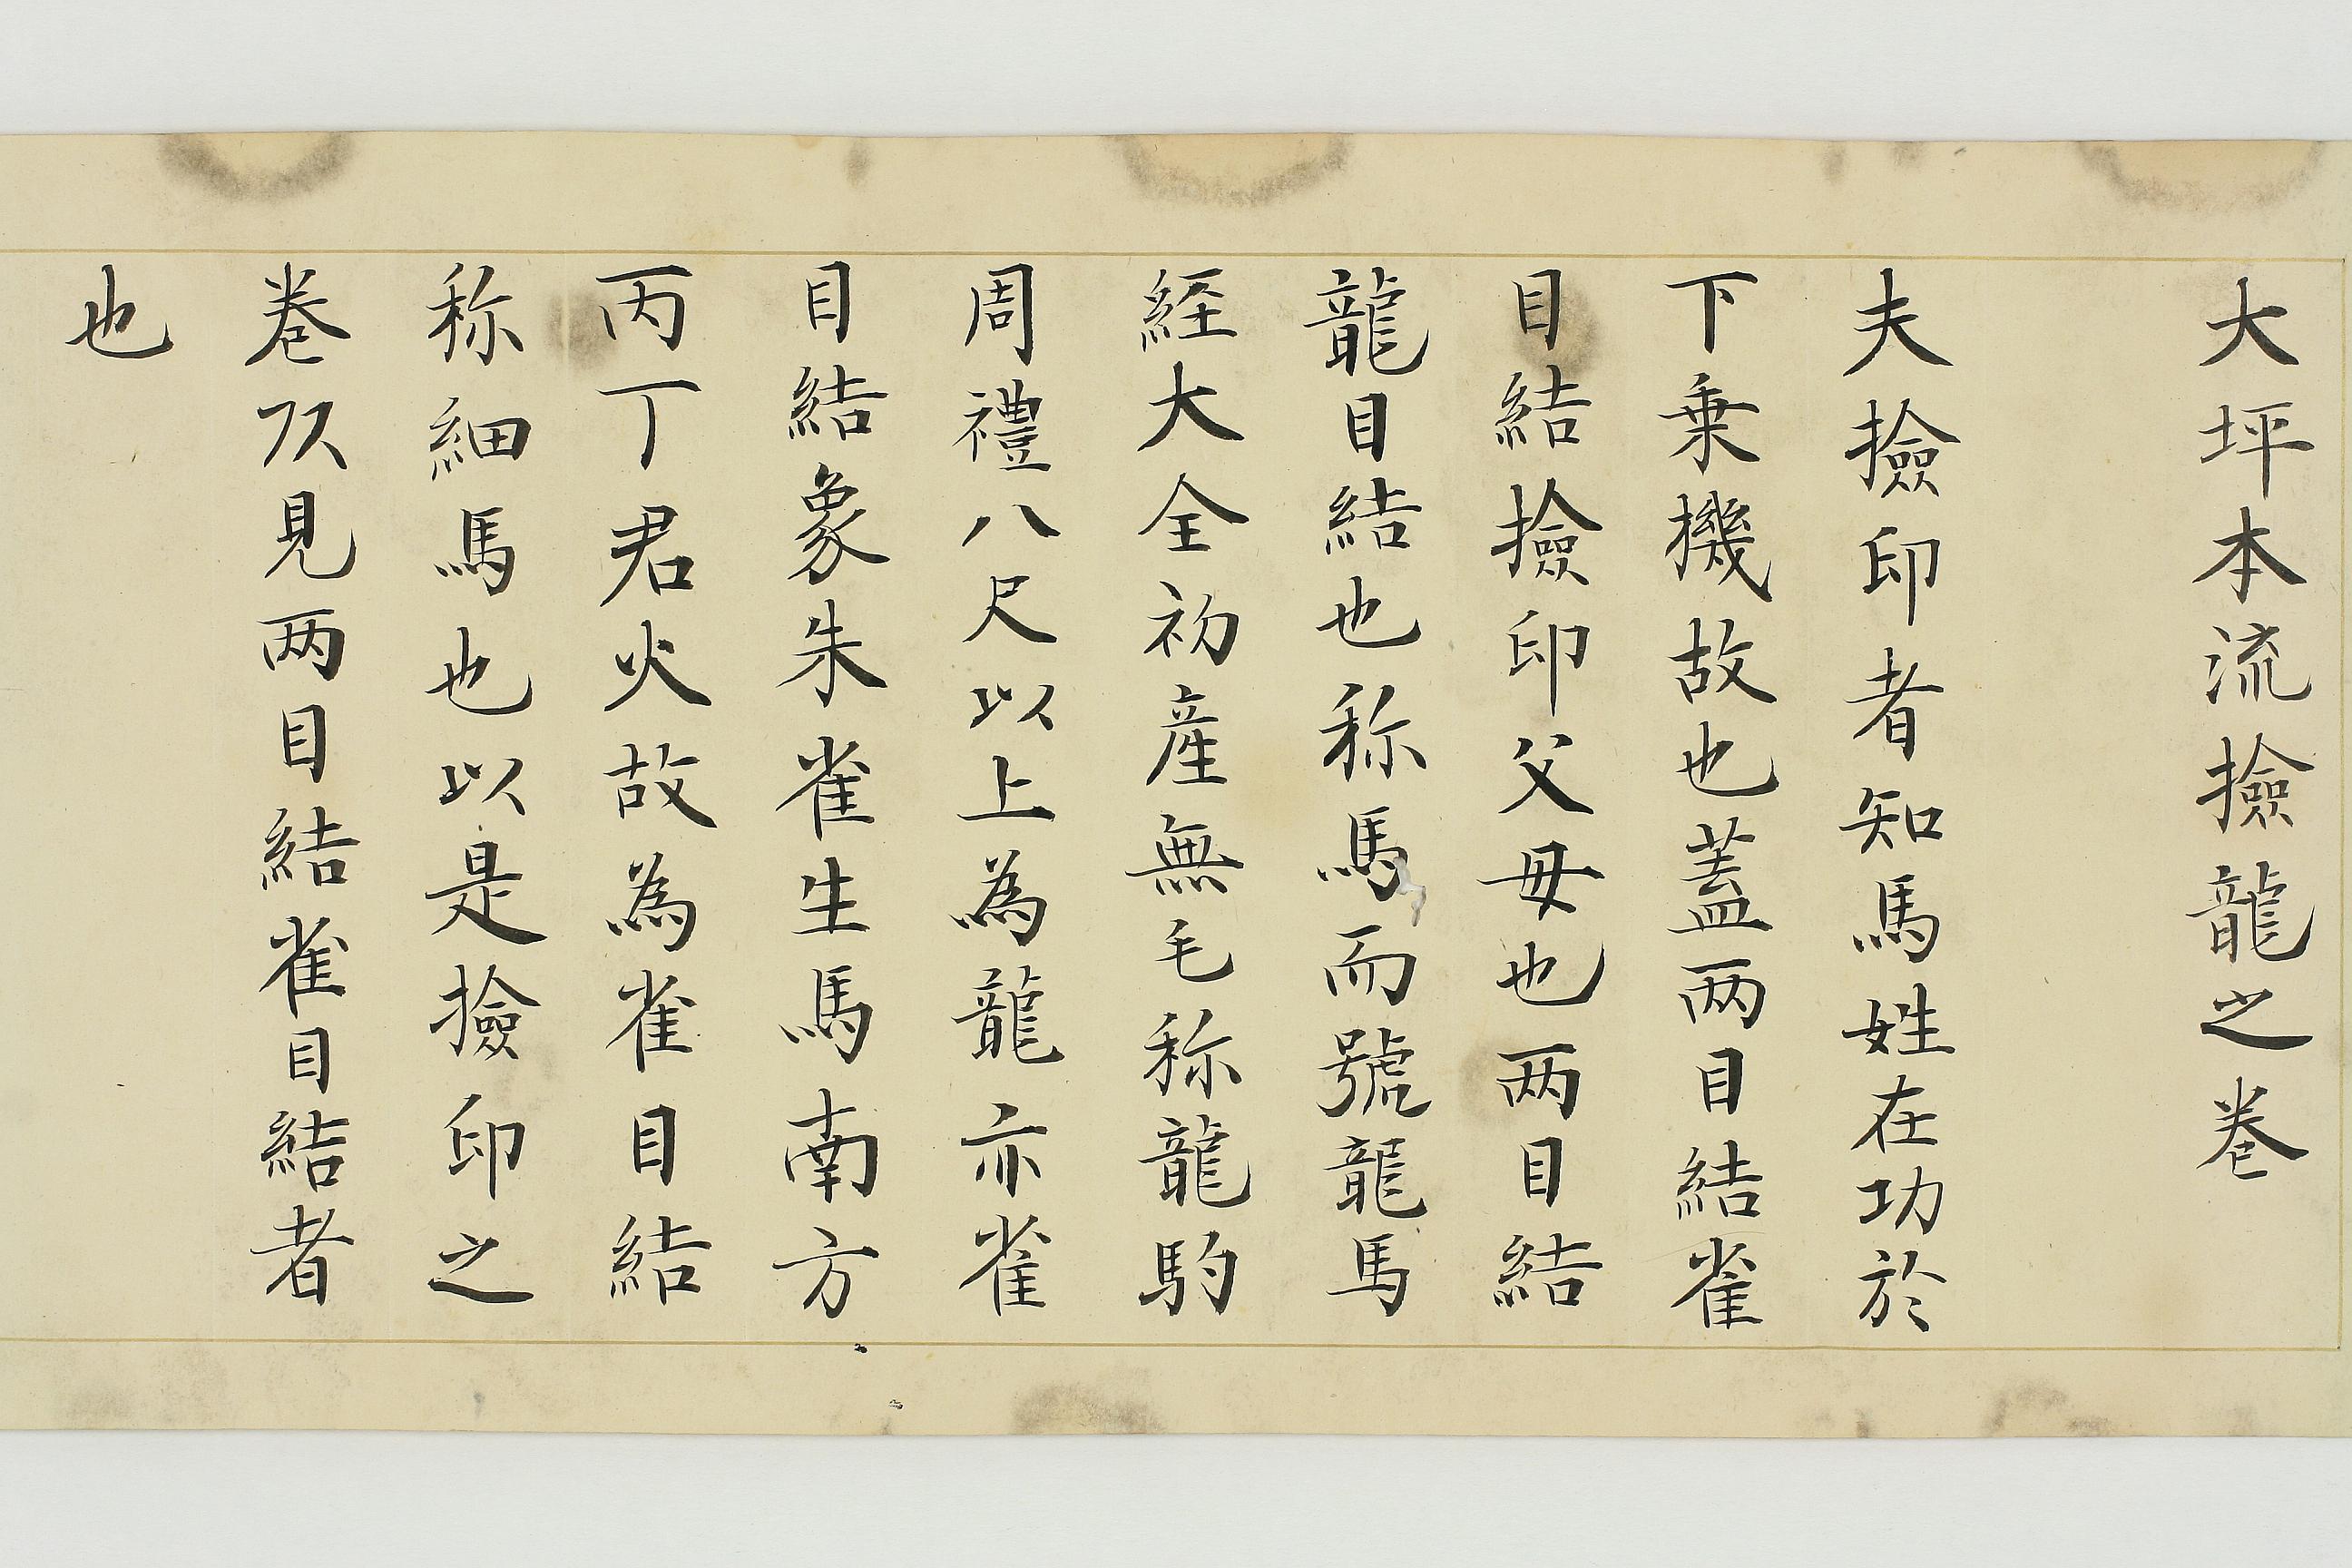 大坪本流撿龍之巻
夫撿印者知馬姓在功於
下乗機故也蓋两目結雀
目結撿印父母也两目結
龍目結也称馬而號龍馬
経大全初産無毛称龍駒
周禮八尺以上為龍亦雀
目結象朱雀生馬南方
丙丁君火故為雀目結
称細馬也以是撿印之
巻次見两目結雀目結者
也